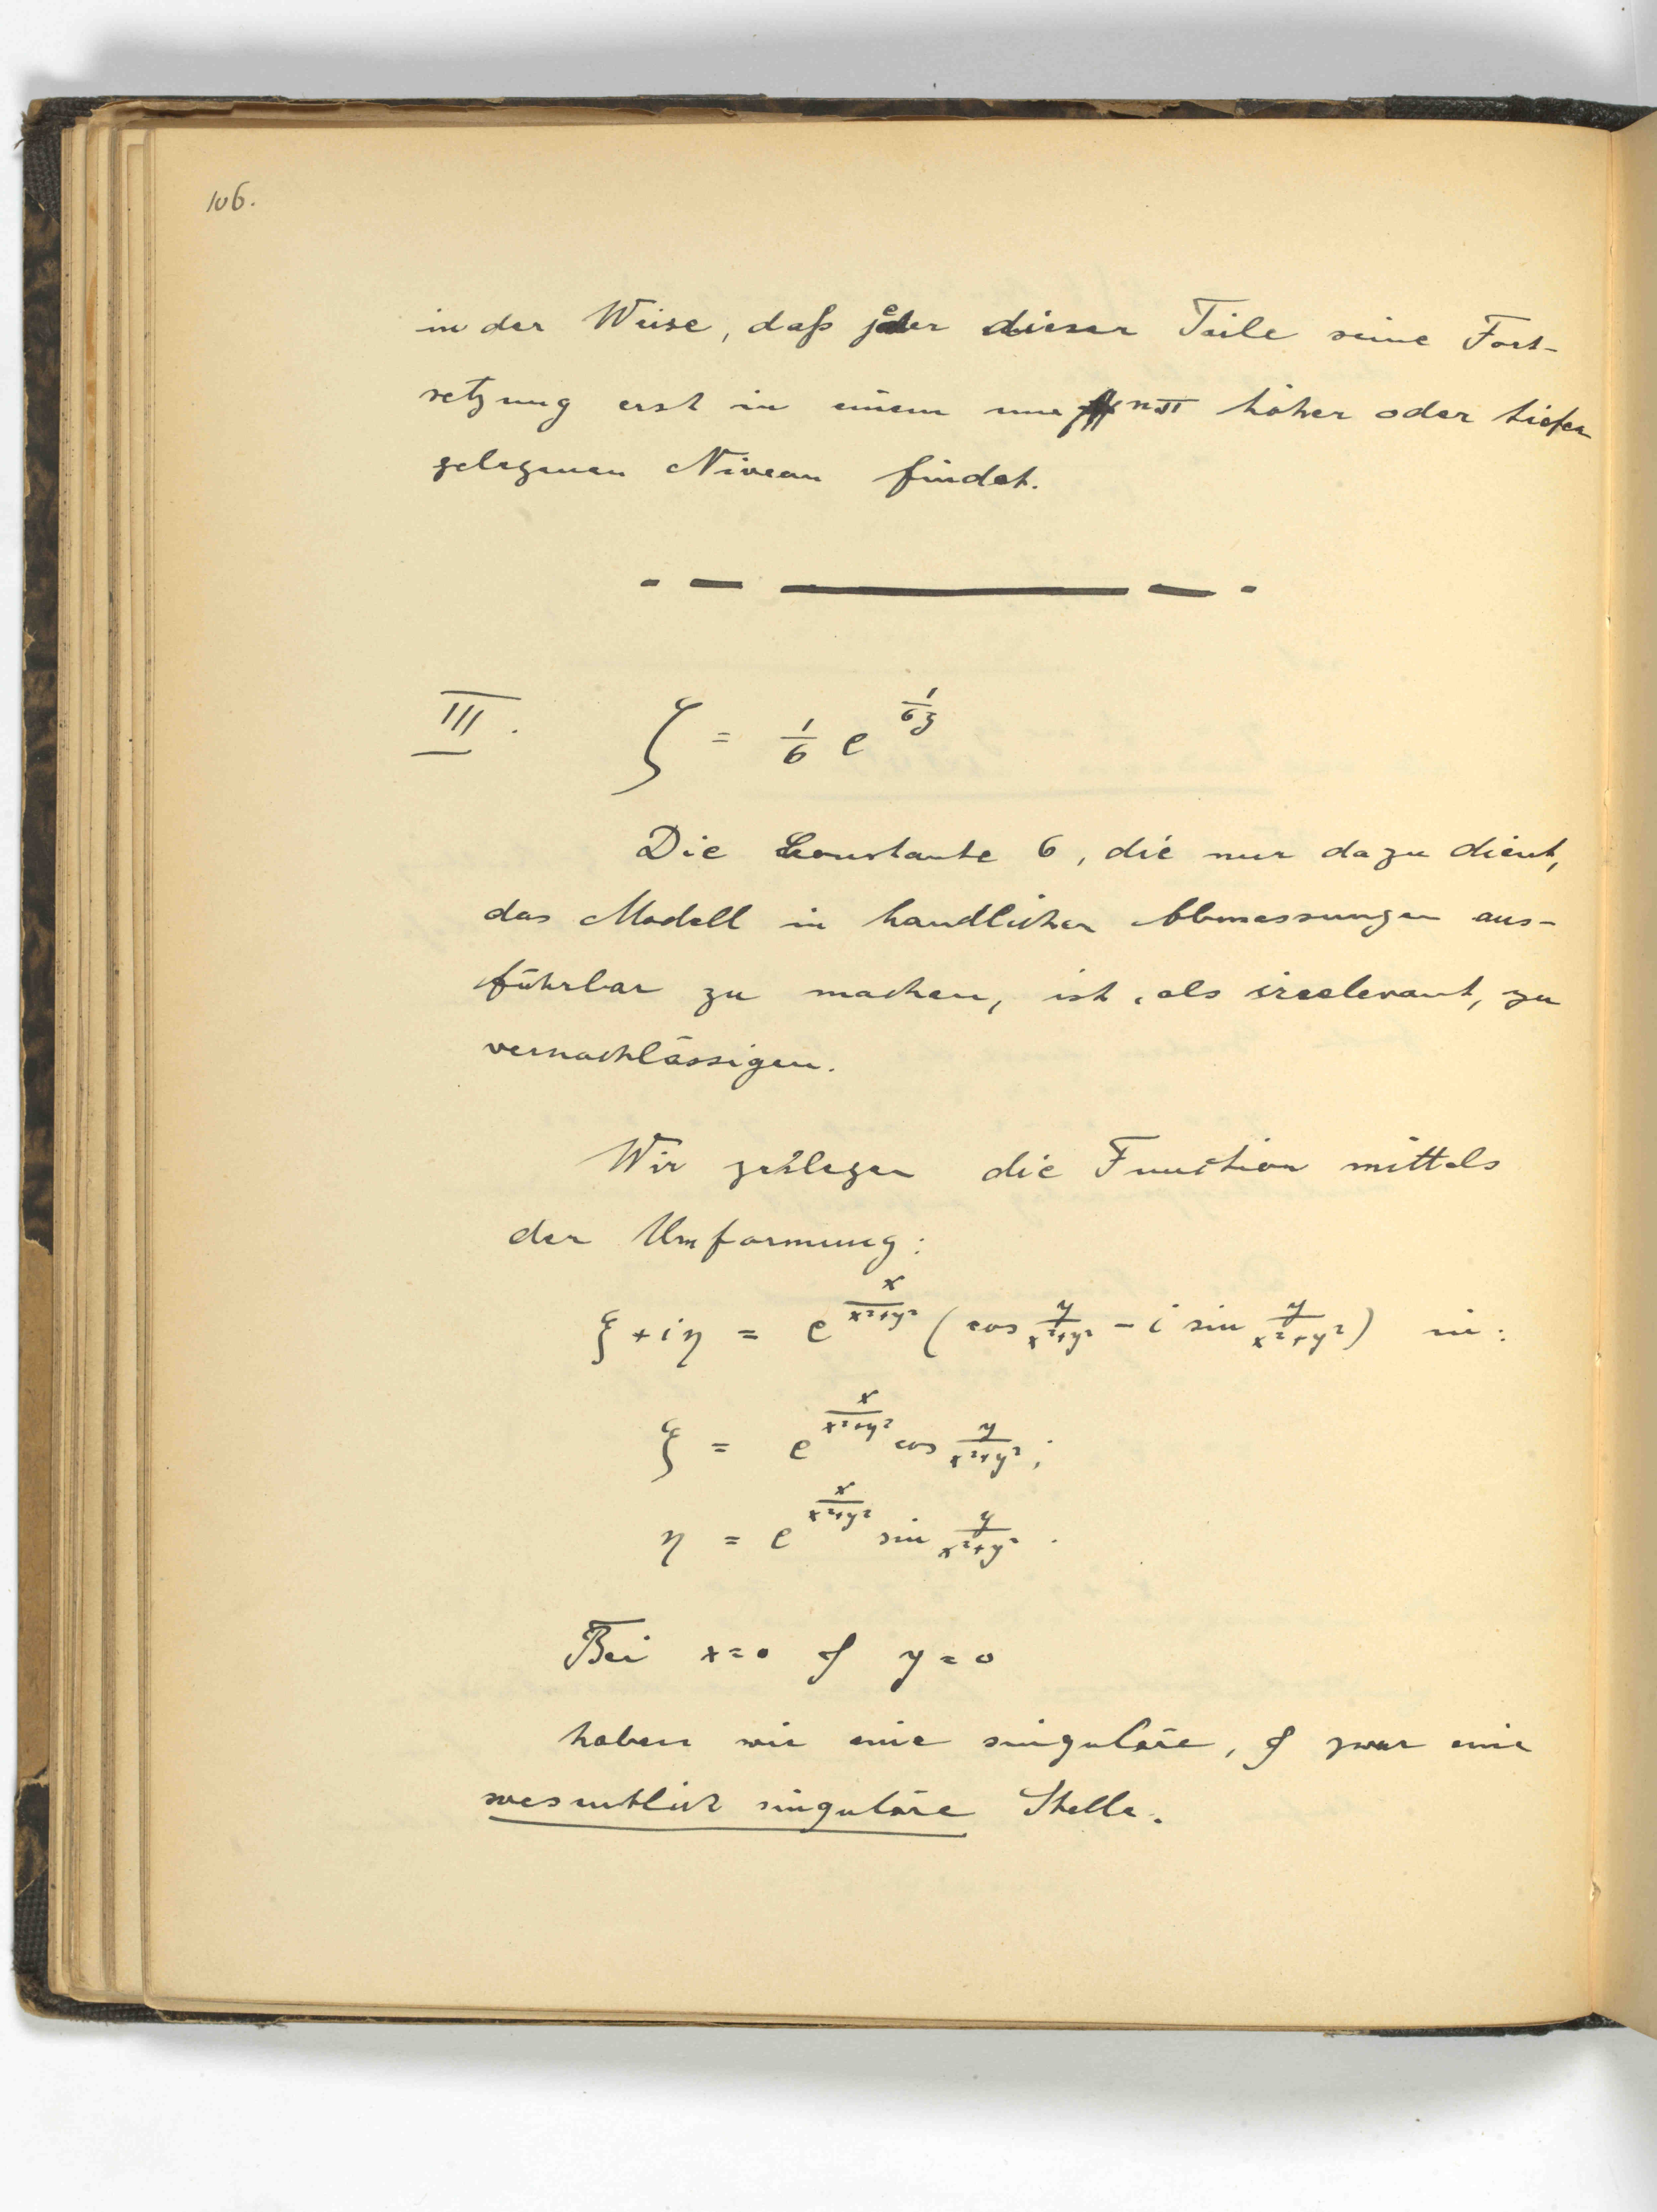 106.
in der Weise, daß jeder dieser Teile seine Fort-
setzung erst in einem um nπ höher oder tiefer
gelegenen Niveau findet.
III. ζ = 1/6 e^(1/(6z))
Die Constante 6, die nur dazu dient,
das Modell in handlichen Abmessungen aus-
führbar zu machen, ist, als irrelevant, zu
vernachlässigen.
Wir zerlegen die Function mittels
der Umformung:
ξ + iη = e^(x/(x²+y²)) (cos y/(x²+y²) - i sin y/(x²+y²)) in:
ξ = e^(x/(x²+y²)) cos y/(x²+y²);
η = e^(x/(x²+y²)) sin y/(x²+y²).
Bei x=0 & y=0
haben wir eine singuläre, & zwar eine
wesentlich singuläre Stelle.